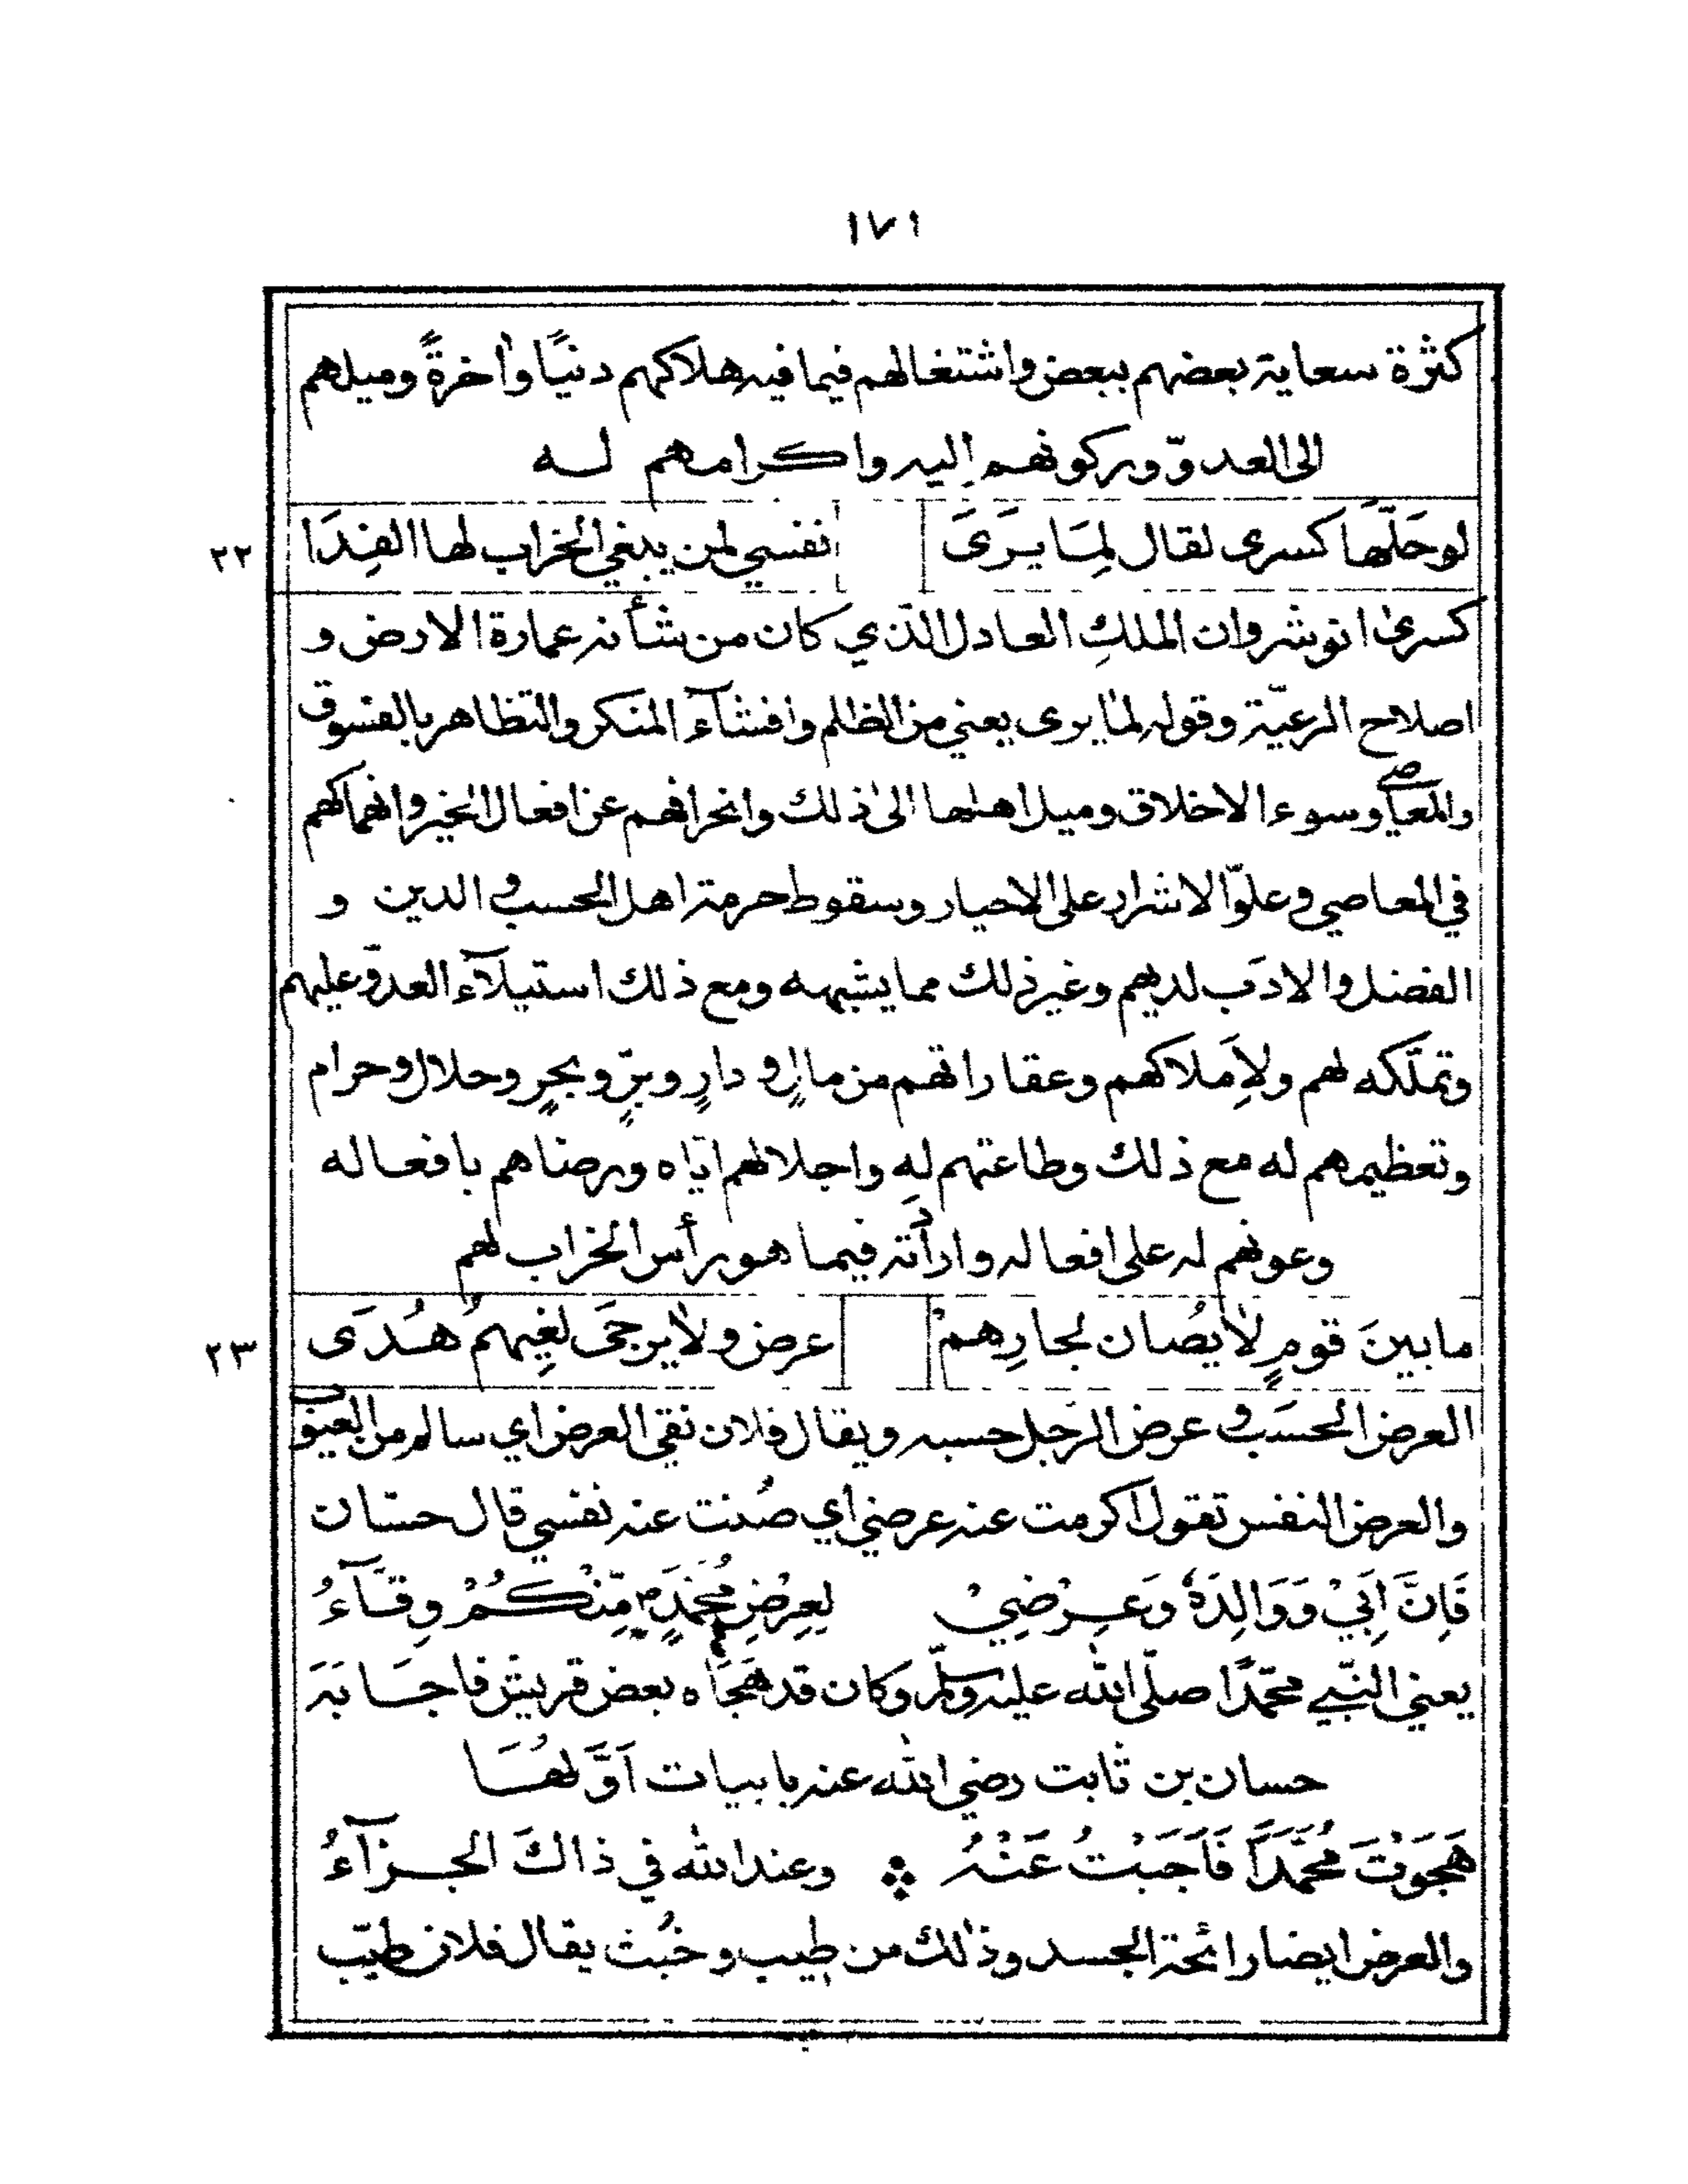 ١٧١
كثرة سعاية بعضهم ببعض واشتغالهم فيما فيه هلاكهم دنيًا وأخرةً وميلهم
الى العدوّ وركونهم اليه واكرامهم له
لوحَلَّهَا كسرى لقال لِمَا يَرَىَ نفسي لمن يبغي الخراب لها الفِدَا ٢٢
كسرىٰ انوشروان الملكِ العادل الذي كان من شأنه عمارة الارض و
اصلاح الرعيّة وقوله لما يرى يعني من الظلم وافشآء المنكر والتظاهر بالفسوق
والمعاصي وسوء الاخلاق وميل اهلها الىٰ ذلك وانحرافهم عن افعال الخير وانهماكهم
في المعاصي وعلوّ الاشرار على الاخيار وسقوط حرمة اهل الحسب والدين و
الفضل والادَب لديهم وغير ذلك مما يشبهه ومع ذلك استيلآء العدوّ عليهم
وتملّكه لهم ولاَِملاكهم وعقاراتهم من مالٍ و دارٍ وبرٍّ وبحرٍ وحلال وحرام
وتعظيمهم له مع ذلك وطاعتهم له واجلالهم ايّاه ورضاهم بافعاله
وعونهم له على افعاله واراَدته فيما هو رأس الخراب لهم
ما بينَ قومٍ لايُصان لجارِهمْ عرض ولايرجَى لغِيهمُ هُدَى ٢٣
العرض الحسَب و عرض الرّجل حسبه ويقال فلان نقي العرض اي سالم من العيوب
والعرض النفس تقول اكرمت عنه عرضي اي صُنت عنه نفسي قال حسّان
فَاِنَّ اَبِيْ وَوَالِدَهُ وَعِرْضِيْ لِعِرْضِ مُحَمَّدٍ مِّنْكُمْ وِقَآءُ
يعني النّبي محمّدًا صلّى الله عليه وسلّم وكان قد هَجَاه بعض قريش فاجَابَه
حسان بن ثابت رضي الله عنه بابيات اَوَّلهَا
هَجَوْتَ مُحَمَّدًا فَاَجَبْتُ عَنْهُ وعند الله في ذاكَ الجزآءُ
والعرض ايضا رائحة الجسد وذلك من طِيب وخُبث يقال فلان طيّب